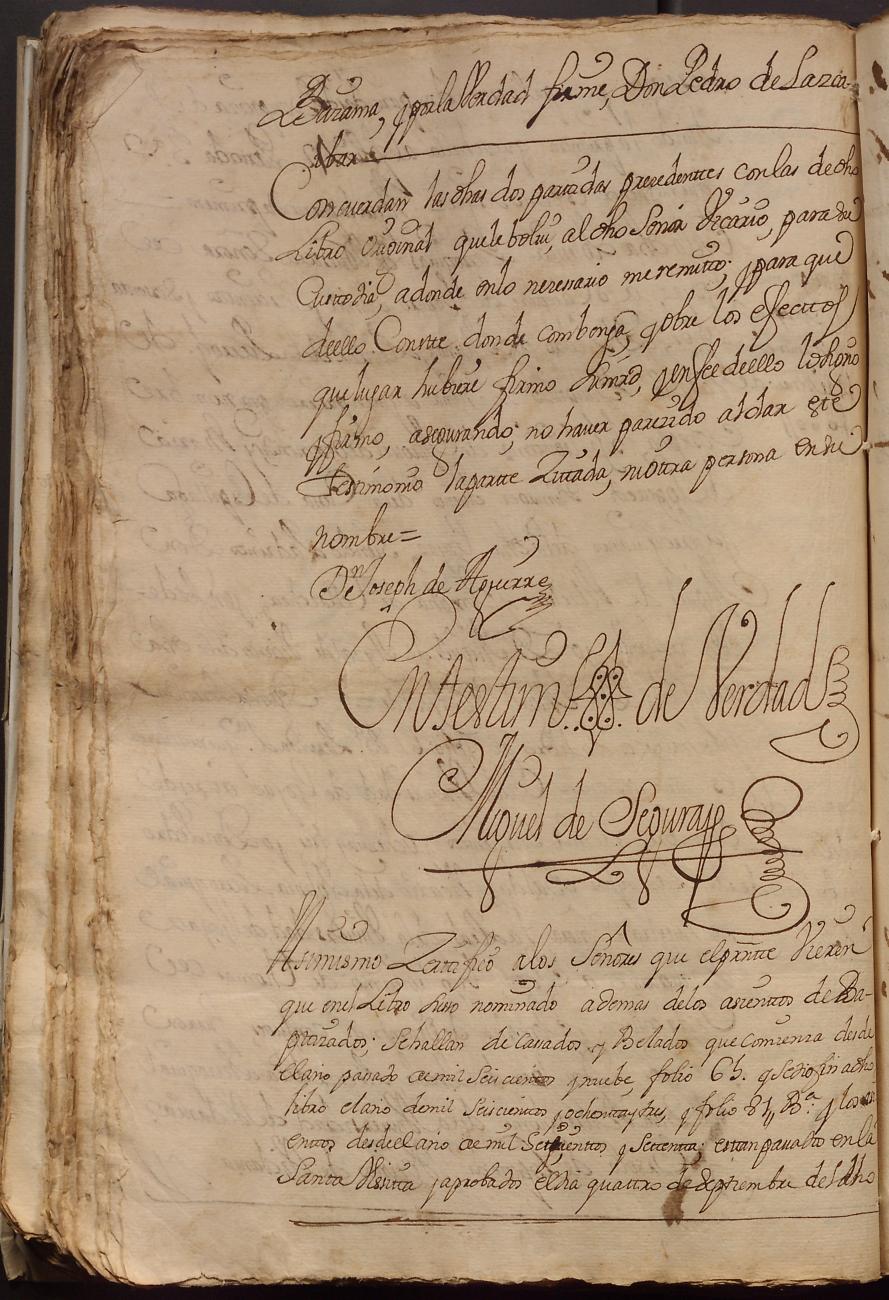 Lizarama, y por la Verdad firme, Don Pedro de Lazca-
ibar
Concuerdan las dhas dos partidas precedentes con las de dho
Libro Orixinal que le bolvi, al dho Señor Vicario, para su
Custodia, a donde en lo necessario me remitto; y para que
deello Conste donde combenga, y obre los efecttos
que lugar hubiere firmo su mrd, y en fee deello lo signo
y firmo, asegurando; no haver parezido al dar este
Testimonio la partte Zittada, ni ottra persona en su
nombre=
Dn Joseph de Aguirre
En testimº de Verdad
Miguel de Segura
Asimismo Zerttifico a los Señores que el pressntte Vieren
que en el Libro suso nominado ademas de los asienttos de Ba-
ptizados; se hallan de Cassados y Belados que comienza desde
el año passado de mil Seis cientos y nuebe, folio 65. y se dio fin a dho
libro el año de mil Seis cientos y ochenta y tres, y folio 81, Bta y los asi-
enttos desde el año de mil Seiscienttos y Settenta; estan pasados en la
Santa Vissitta y aprobados el dia quattro de Septiembre del dho